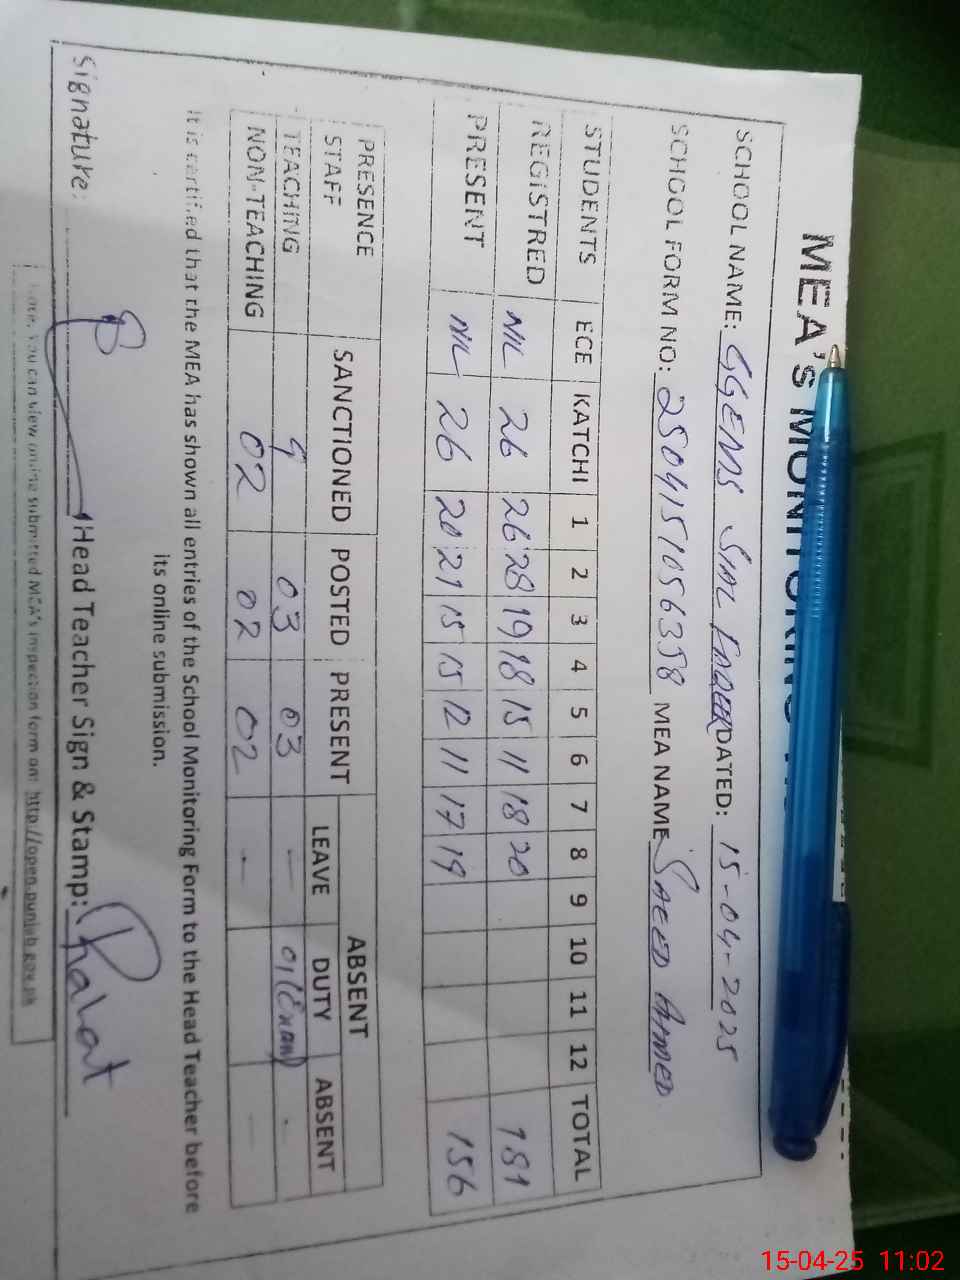 MEA's MONITORING
SCHOOL NAME: GGEMS DATED: 15-04-2025
SCHOOL FORM NO: 2504151056358 MEA NAME SAEED AHMED
STUDENTS ECE KATCHI 1 2 3 4 5 6 7 8 9 10 11 12 TOTAL
REGISTRED NIL 26 26 28 19 18 15 11 18 20 181
PRESENT NIL 26 20 21 15 15 12 11 17 19 156
PRESENCE STAFF SANCTIONED POSTED PRESENT ABSENT
LEAVE DUTY ABSENT
TEACHING 9 03 03 — 01 (Exam) -
NON-TEACHING 02 02 02 - - —
It is certified that the MEA has shown all entries of the School Monitoring Form to the Head Teacher before
its online submission.
Signature: Head Teacher Sign & Stamp:
Note: You can view online submitted MEA's inspection form on: http://open.punjab.gov.pk
15-04-25 11:02